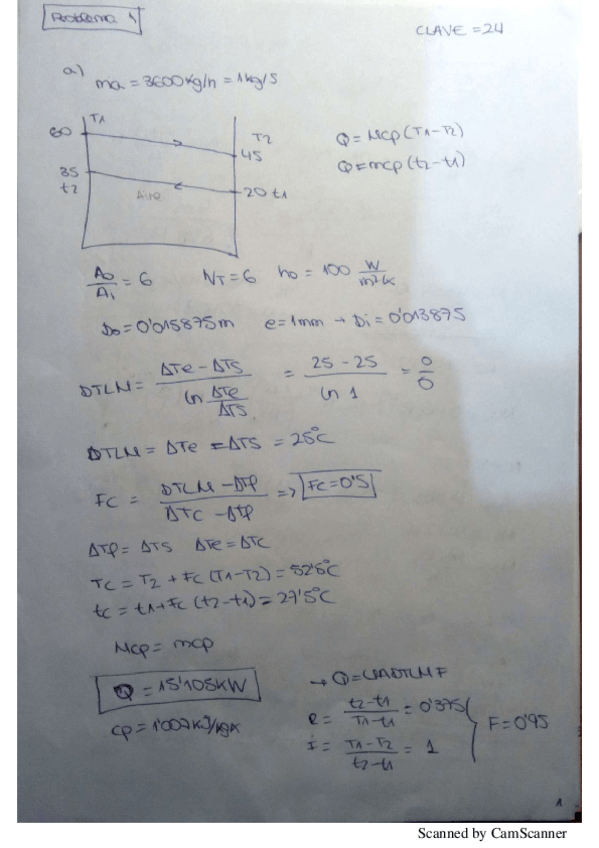 Problema 1
CLAVE = 24
a) ma = 3600kg/h = 1kg/s
T1
60
T2
45
35
t2
Aire
20 t1
Q = Mcp (T1-T2)
Q = mcp (t2-t1)
Ao/Ai = 6 NT = 6 ho = 100 W/m²K
Do = 0'015875m e = 1mm → Di = 0'013875
DTLM = (ΔTe - ΔTS)/(ln ΔTe/ΔTS) = (25 - 25)/(ln 1) = 0/0
DTLM = ΔTe = ΔTS = 25°C
FC = (DTLM - ΔTf)/(ΔTC - ΔTf) => FC = 0'5
ΔTf = ΔTS ΔTe = ΔTC
TC = T2 + FC (T1-T2) = 52'5°C
tc = t1 + FC (t2-t1) = 27'5°C
Mcp = mcp
Q = 15'105KW
cp = 1'007KJ/kgK
→ Q = UADTLM F
R = (t2-t1)/(T1-t1) = 0'375
i = (T1-T2)/(t2-t1) = 1
F = 0'95
1
Scanned by CamScanner